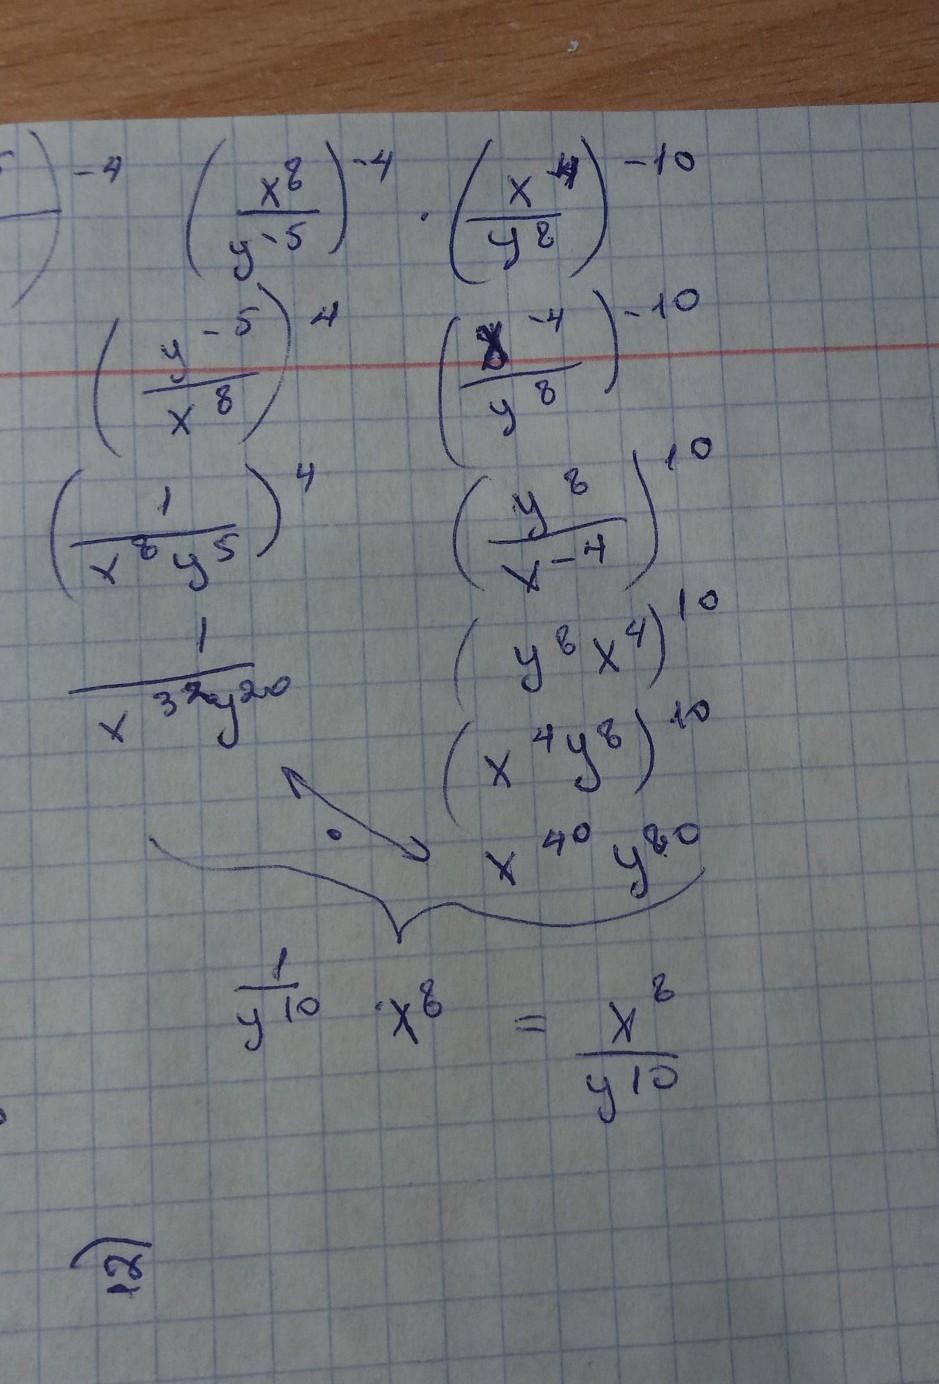 )^{-4} (x^8 / y^{-5})^{-4} · (x^{-4} / y^8)^{-10}
(y^{-5} / x^8)^4 (x^{-4} / y^8)^{-10}
(1 / x^8 y^5)^4 (y^8 / x^{-4})^{10}
1 / x^{32} y^{20} (y^8 x^4)^{10}
(x^4 y^8)^{10}
· x^{40} y^{80}
1 / y^{10} · x^8 = x^8 / y^{10}